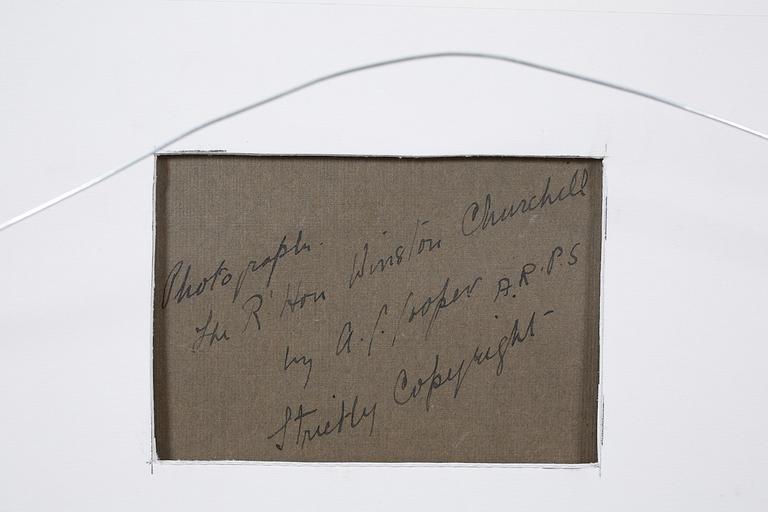 Photograph.
The Rt Hon Winston Churchill
by A. J. Cooper A.R.P.S
Strictly Copyright